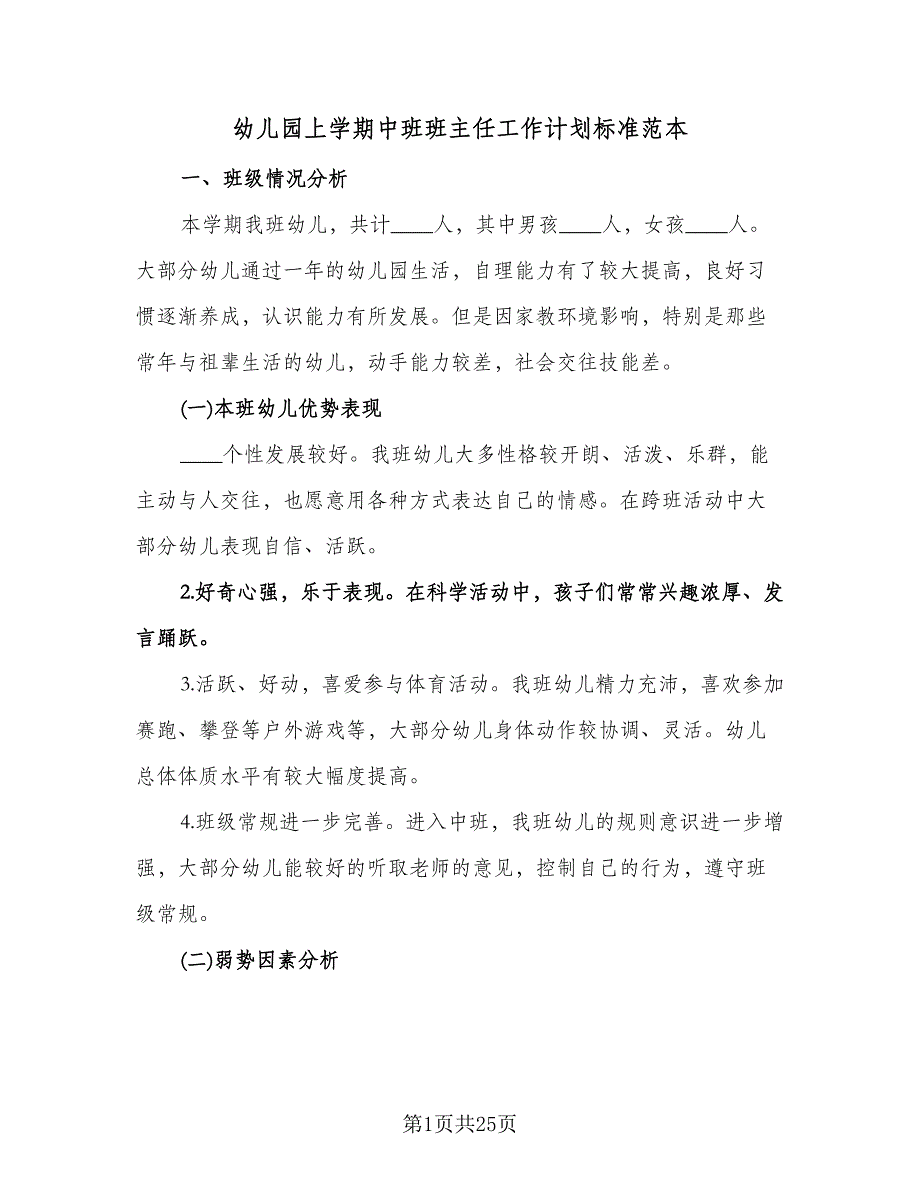 幼儿园上学期中班班主任工作计划标准范本
一、班级情况分析
本学期我班幼儿，共计____人，其中男孩____人，女孩____人。
大部分幼儿通过一年的幼儿园生活，自理能力有了较大提高，良好习
惯逐渐养成，认识能力有所发展。但是因家教环境影响，特别是那些
常年与祖辈生活的幼儿，动手能力较差，社会交往技能差。
(一)本班幼儿优势表现
____个性发展较好。我班幼儿大多性格较开朗、活泼、乐群，能
主动与人交往，也愿意用各种方式表达自己的情感。在跨班活动中大
部分幼儿表现自信、活跃。
2.好奇心强，乐于表现。在科学活动中，孩子们常常兴趣浓厚、发
言踊跃。
3.活跃、好动，喜爱参与体育活动。我班幼儿精力充沛，喜欢参加
赛跑、攀登等户外游戏等，大部分幼儿身体动作较协调、灵活。幼儿
总体体质水平有较大幅度提高。
4.班级常规进一步完善。进入中班，我班幼儿的规则意识进一步增
强，大部分幼儿能较好的听取老师的意见，控制自己的行为，遵守班
级常规。
(二)弱势因素分析
第1页共25页